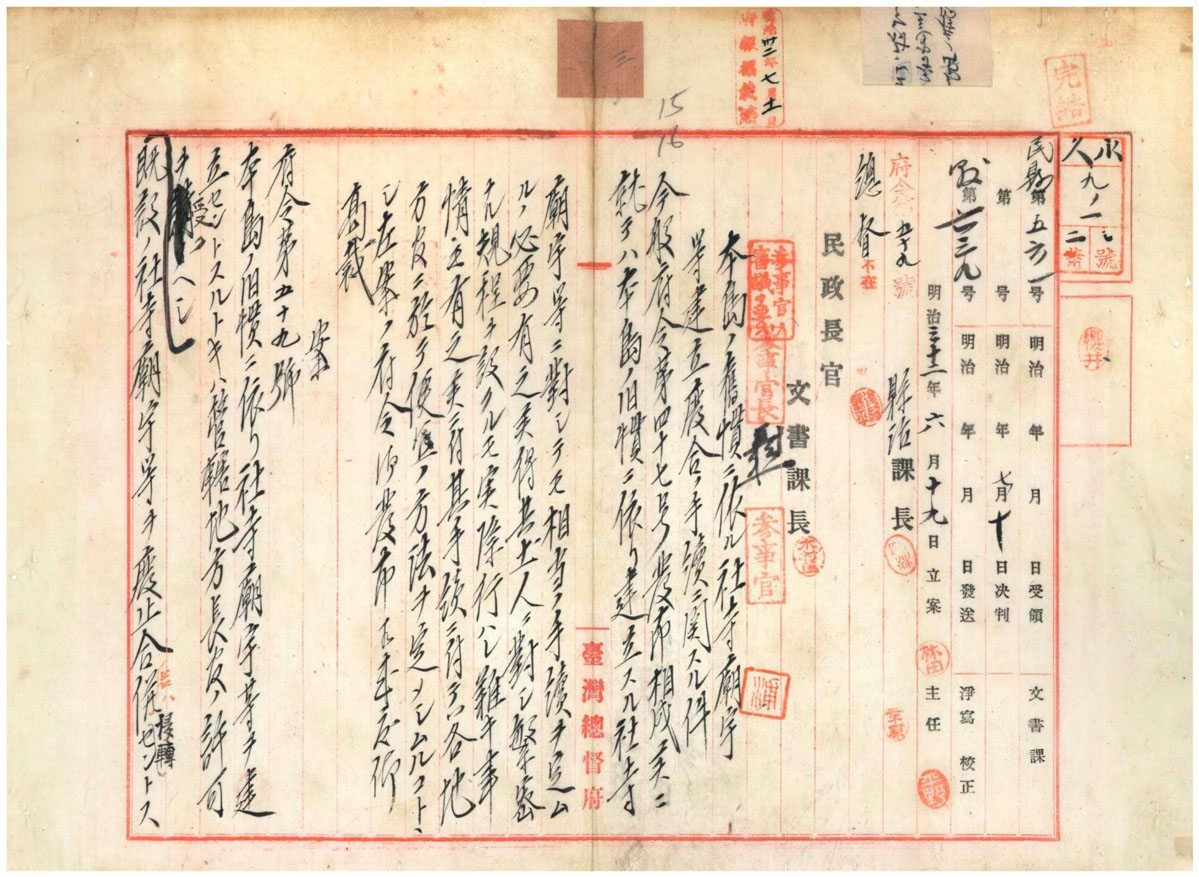 永久
九ノ一
二
號
葉
完結
民縣第五六一号 明治 年 月 日受領 文書課
第 号 明治 年 七月十日決判
第六三九号 明治 年 月 日發送 淨寫 校正
明治三十二年六月十九日立案 主任
府令五十九號
總督不在
縣治課長
民政長官
文書課長
參事官長
參事官
本島ノ舊慣ニ依ル社寺廟宇
等建立廢合ノ手續ニ関スル件
今般府令第四十七号發布相成候ニ
就テハ本島ノ旧慣ニ依リ建立スル社寺
廟宇等ニ對シテモ相當ノ手續ヲ定ム
ルノ必要有之候得共土人ニ對シ繁密
ナル規程ヲ設クルモ実際行ハレ難キ事
情モ有之候ニ付其手續ニ付テハ各地
方官ニ於テ便宜ノ方法ヲ定メシムルコトヽ
シ左案ノ府令御發布可相成哉仰
高裁
案
府令第五十九號
本島ノ旧慣ニ依リ社寺廟宇等ヲ建
立セントスルトキハ管轄地方長官ノ許可
ヲ受クヘシ
既設ノ社寺廟宇等ヲ廢止合併セントス
移轉
臺灣總督府
明治卅二年七月十一日
府報掲載濟
三
15
16